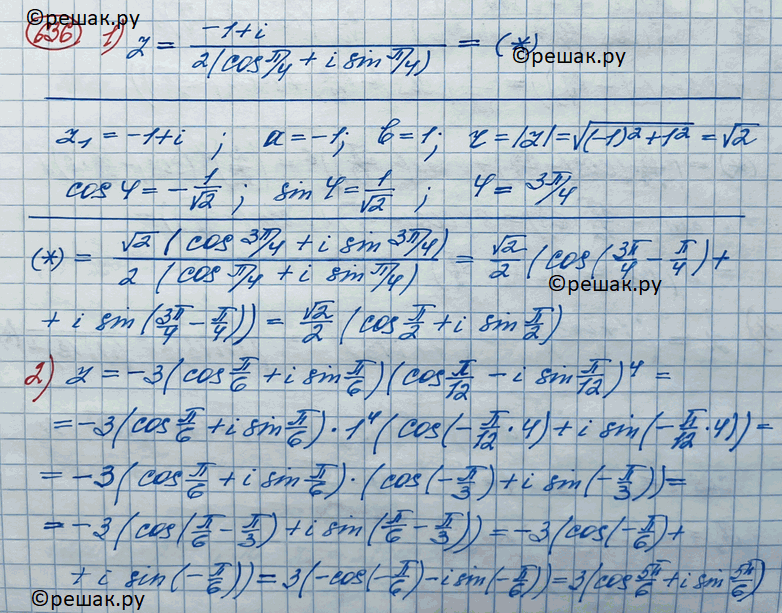 ©решак.ру
636 1) z = (-1+i)/(2(cos π/4 + i sin π/4)) = (*)
©решак.ру
z₁ = -1+i ; a = -1; b = 1; r = |z| = √((-1)²+1²) = √2
cos φ = -1/√2 ; sin φ = 1/√2 ; φ = 3π/4
(*) = √2(cos 3π/4 + i sin 3π/4)/(2(cos π/4 + i sin π/4)) = √2/2 (cos(3π/4 - π/4) +
©решак.ру
+ i sin(3π/4 - π/4)) = √2/2 (cos π/2 + i sin π/2)
2) z = -3(cos π/6 + i sin π/6)(cos π/12 - i sin π/12)⁴ =
= -3(cos π/6 + i sin π/6) · 1⁴(cos(-π/12 · 4) + i sin(-π/12 · 4)) =
= -3(cos π/6 + i sin π/6) · (cos(-π/3) + i sin(-π/3)) =
= -3(cos(π/6 - π/3) + i sin(π/6 - π/3)) = -3(cos(-π/6) +
+ i sin(-π/6)) = 3(-cos(-π/6) - i sin(-π/6)) = 3(cos 5π/6 + i sin 5π/6)
©решак.ру